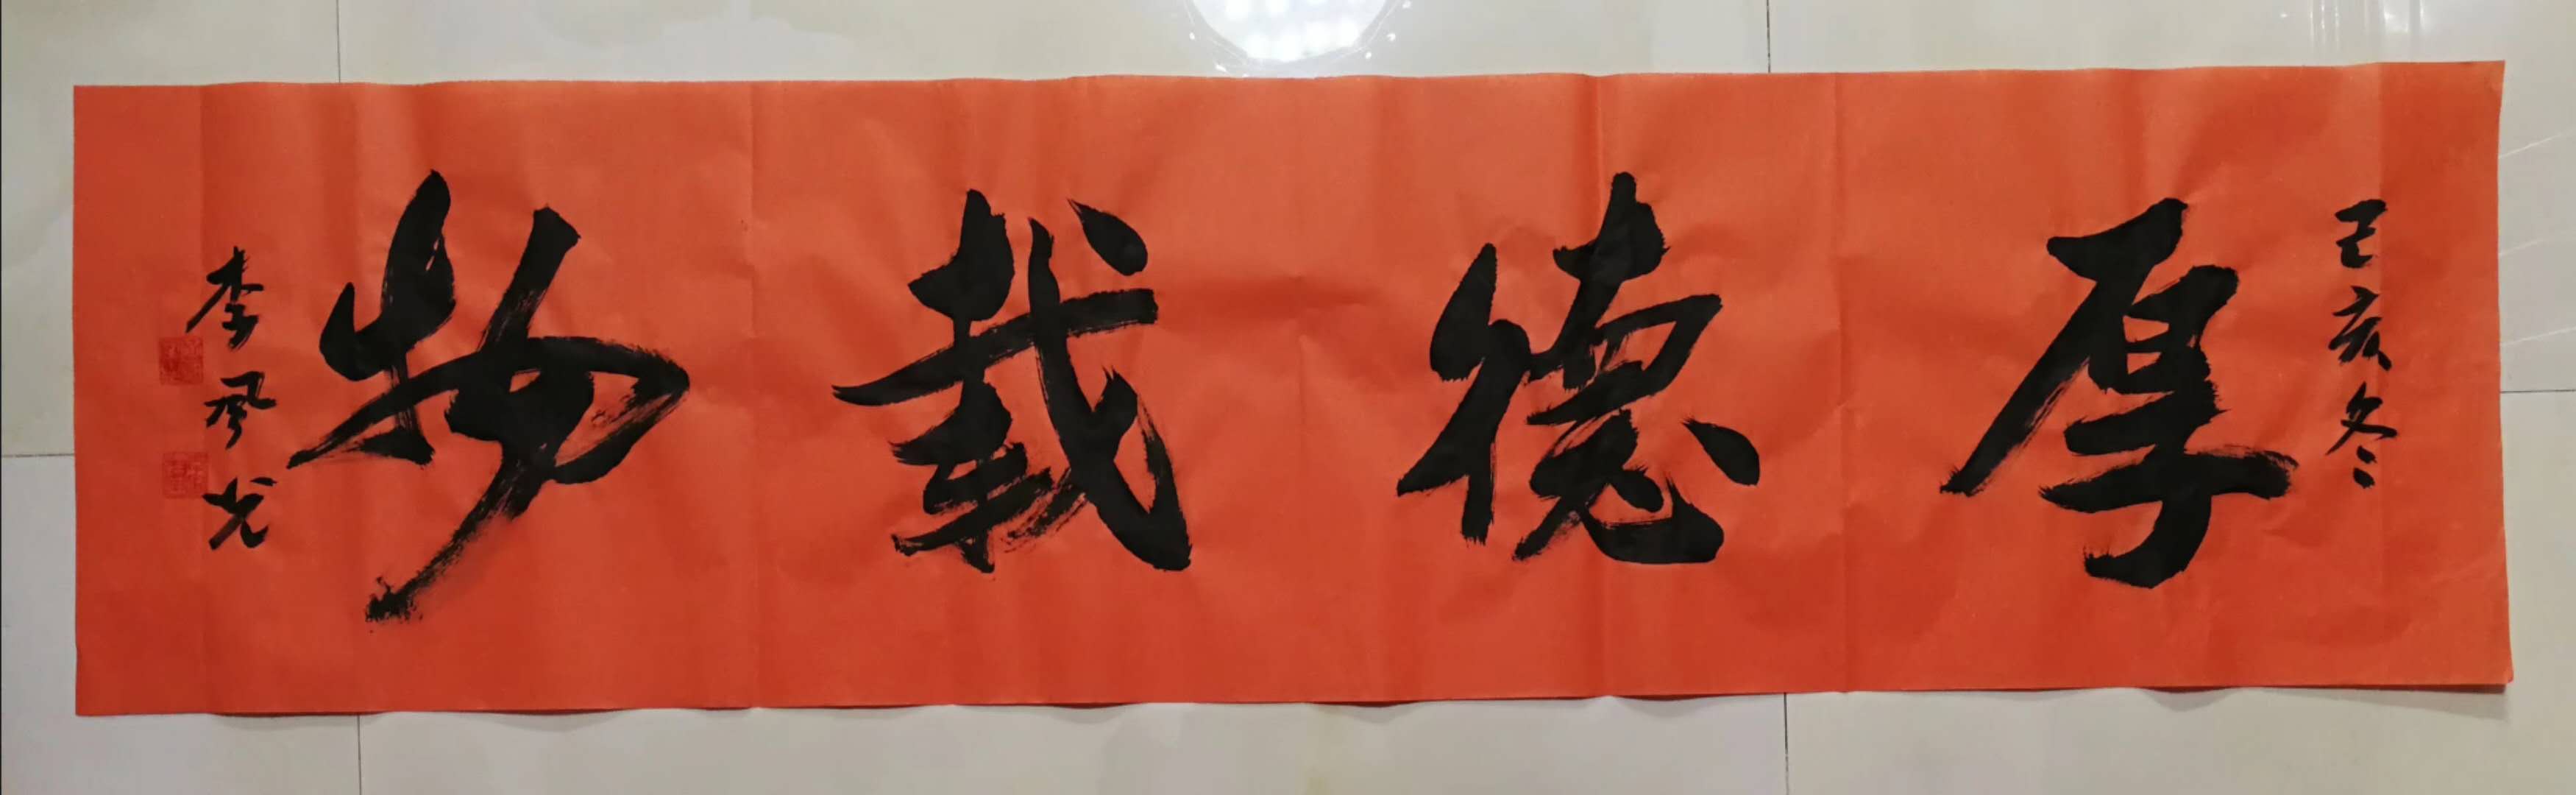 己亥冬
厚德载物
李风光